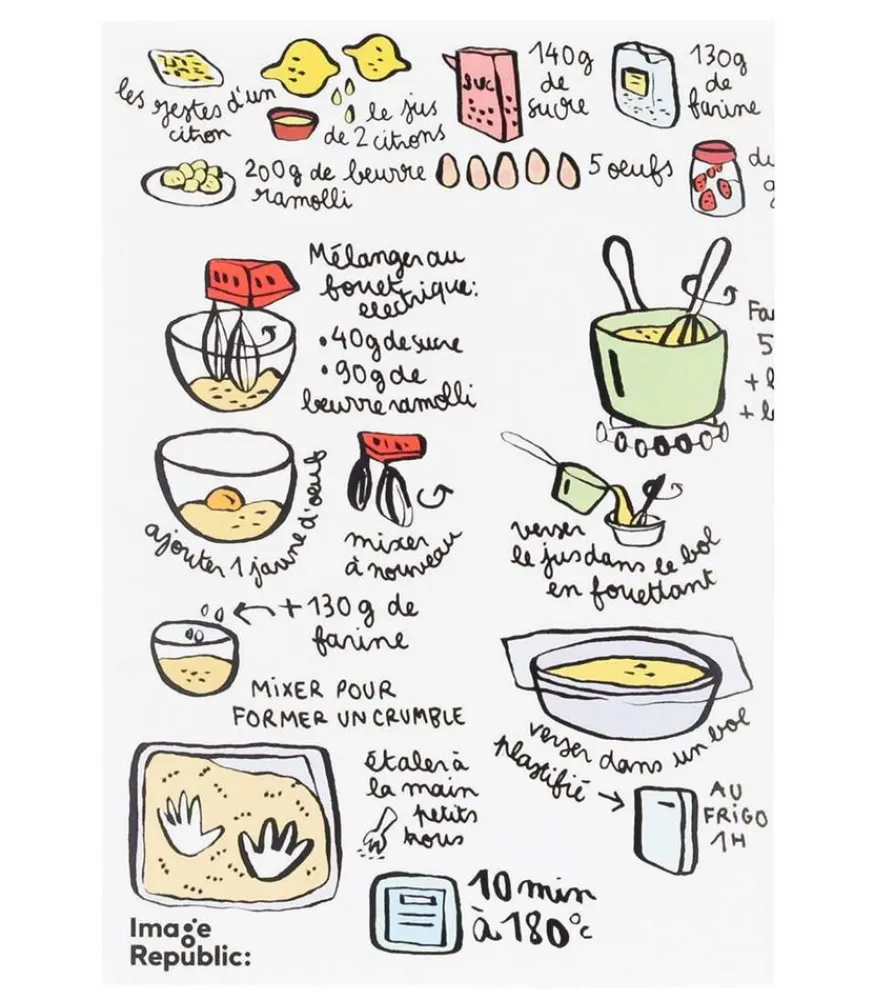 les zestes d'un
citron
le jus
de 2 citrons
SUC
140g
de
sucre
130g
de
farine
200g de beurre
ramolli
5 oeufs
du
g
Mélanger au
fouet
electrique:
• 40g de sucre
• 90g de
beurre ramolli
Fa
5
+ l
+ l
ajouter 1 jaune d'oeuf
mixer
à nouveau
verser
le jus dans le bol
en fouettant
+ 130g de
farine
MIXER POUR
FORMER UN CRUMBLE
verser dans un bol
plastifié →
AU
FRIGO
1H
étaler à
la main
petits
trous
10 min
à 180°c
Image
Republic: